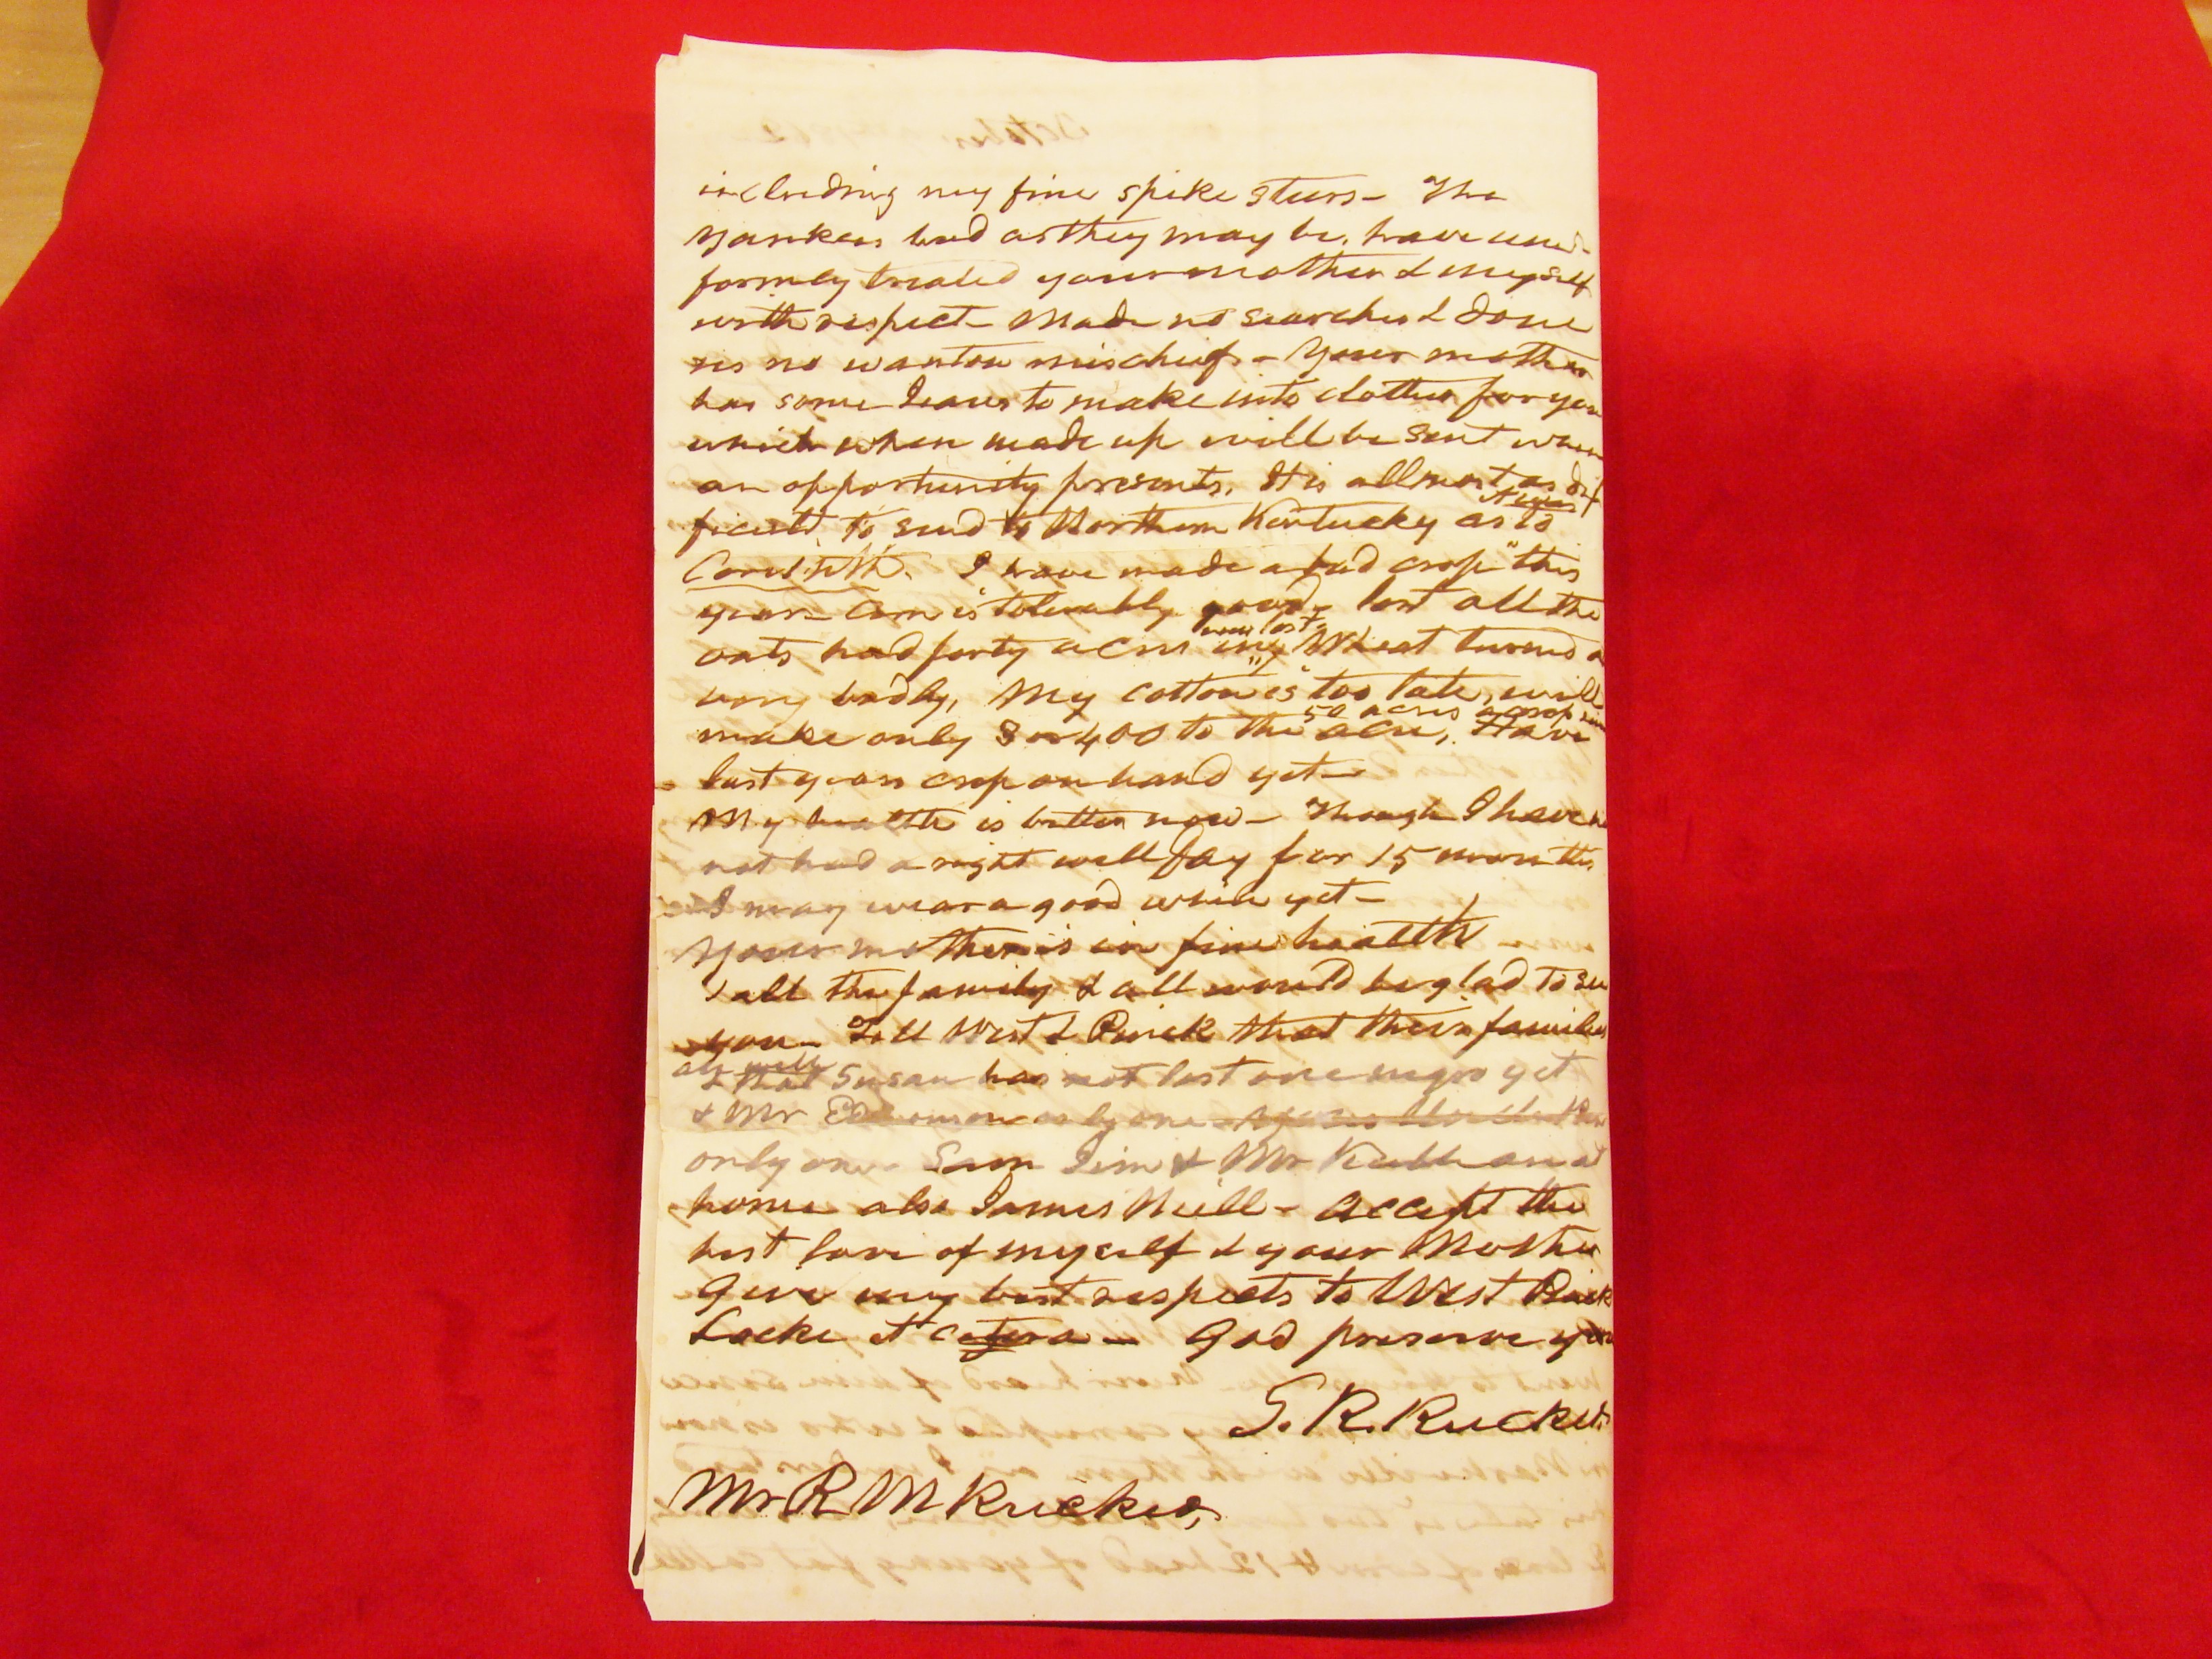 including my fine spike steers - The
Yankees bad as they may be, have uni-
formly treated your mother & myself
with respect - Made no searches & done
us no wanton mischief - Your mother
has some Jeans to make into clothes for you
which when made up will be sent when
an opportunity presents. It is allmost as dif
ficult to send to Northern Kentucky as to
Corinth. I have made a bad crop this
year - Corn is tolerably good, lost all the
oats had forty acres in, Wheat turned o
very badly, My cotton is too late, will
50 acres
make only 3 or 400 to the acre, Have
last years crop on hand yet -
My health is better now - Though I have
not had a right well day for 15 months
I may wear a good while yet -
Your mother is in fine health
all the family & all would be glad to see
you - Tell West & that their families
are well
& that Susan has not lost one negro yet
& Mr only one
only one - Sam Jim & Mr are at
home also James Neill - Accept the
best love of myself & your Mother
Give my best respects to West
Locke et cetera - God preserve you
S. R. Rucker
Mr R M Rucker,